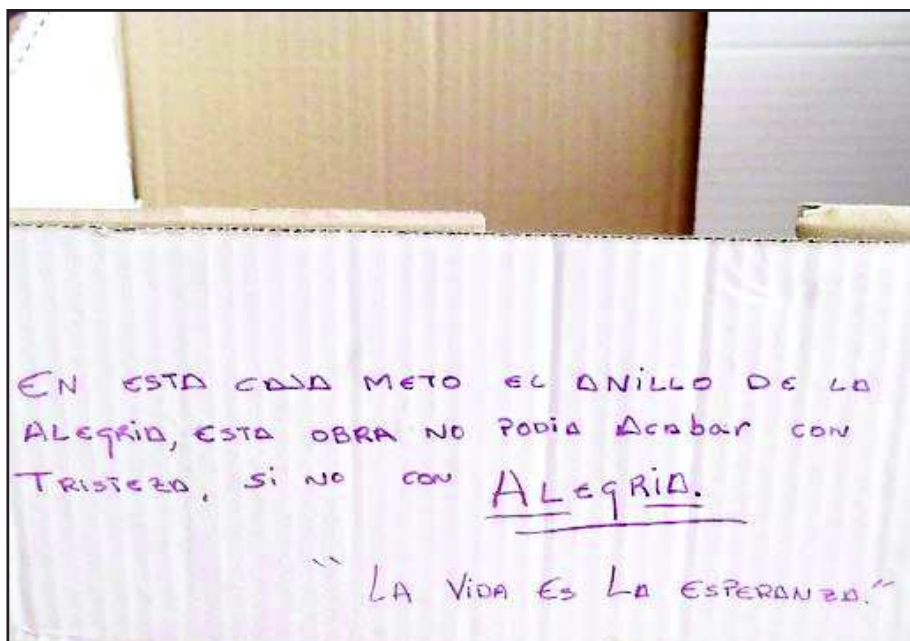 EN ESTA CAJA METO EL ANILLO DE LA
ALEGRIA, ESTA OBRA NO PODIA Acabar CON
TRISTEZA, Si NO CON ALEgRIA.
"LA ViDA ES LA ESPERANZA."